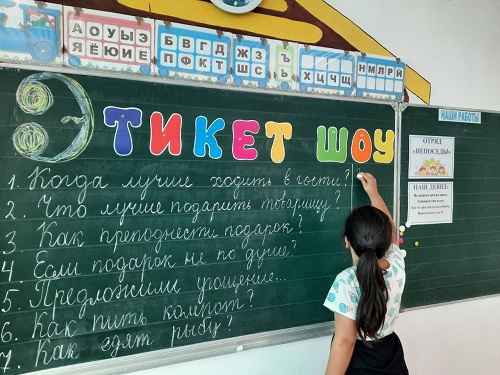 А О У Ы Э
Я Ё Ю И Е
Б В Г Д
П Ф К Т
Ж З
Ш С
Ъ
Ь
Х Ц Ч Щ
Н М Л Р Й
ЭТИКЕТ ШОУ
1. Когда лучше ходить в гости?
2. Что лучше подарить товарищу?
3 Как преподнести подарок?
4 Если подарок не по душе?
5 Предложили угощение...
6. Как пить компот?
7. Как едят рыбу?
НАШИ РАБОТЫ
ОТРЯД
«НЕПОСЕДЫ»
НАШ ДЕВИЗ: